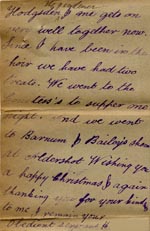 Hodgsden & me gets on
very well together now.
Since I have been in the
hoir we have had two
treats. We went to the
to supper one
night. And we went
to Barnum & Bailey's show
at Aldershot Wishing you
a happy Christmas & again
thanking you for your kind
to me I remain your
Obedient servant